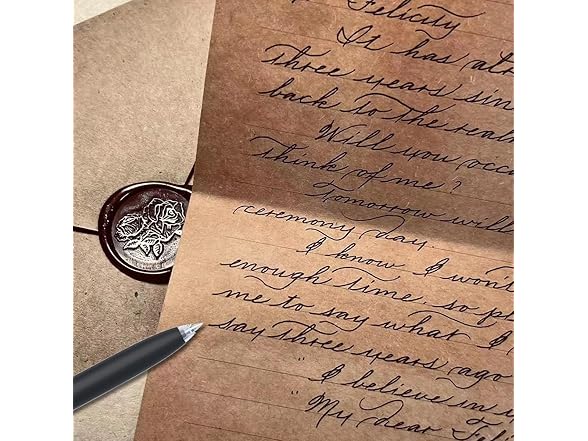 Felicity
It has alr
three years sin
back to the realm
Will you occ
think of me?
Tomorrow will
ceremony day.
I know, I won't
enough time, so pl
me to say what I
say three years ago
"I believe in y
"My dear Fel